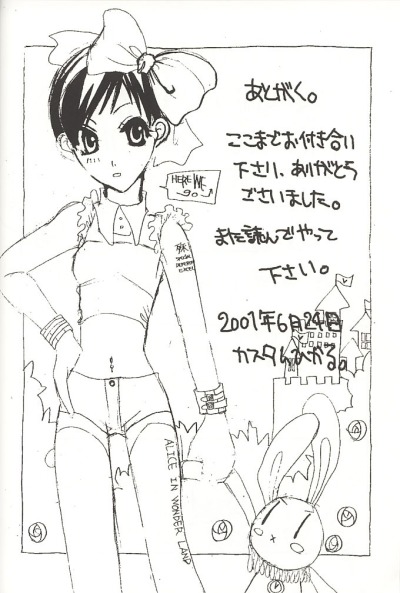 あとがく。
ここまでお付き合い
下さり、ありがとう
ございました。
また読んでやって
下さい。
2001年6月24日
カスタムひかる。
HERE WE
go
SPECIAL
ALICE IN WONDER LAND